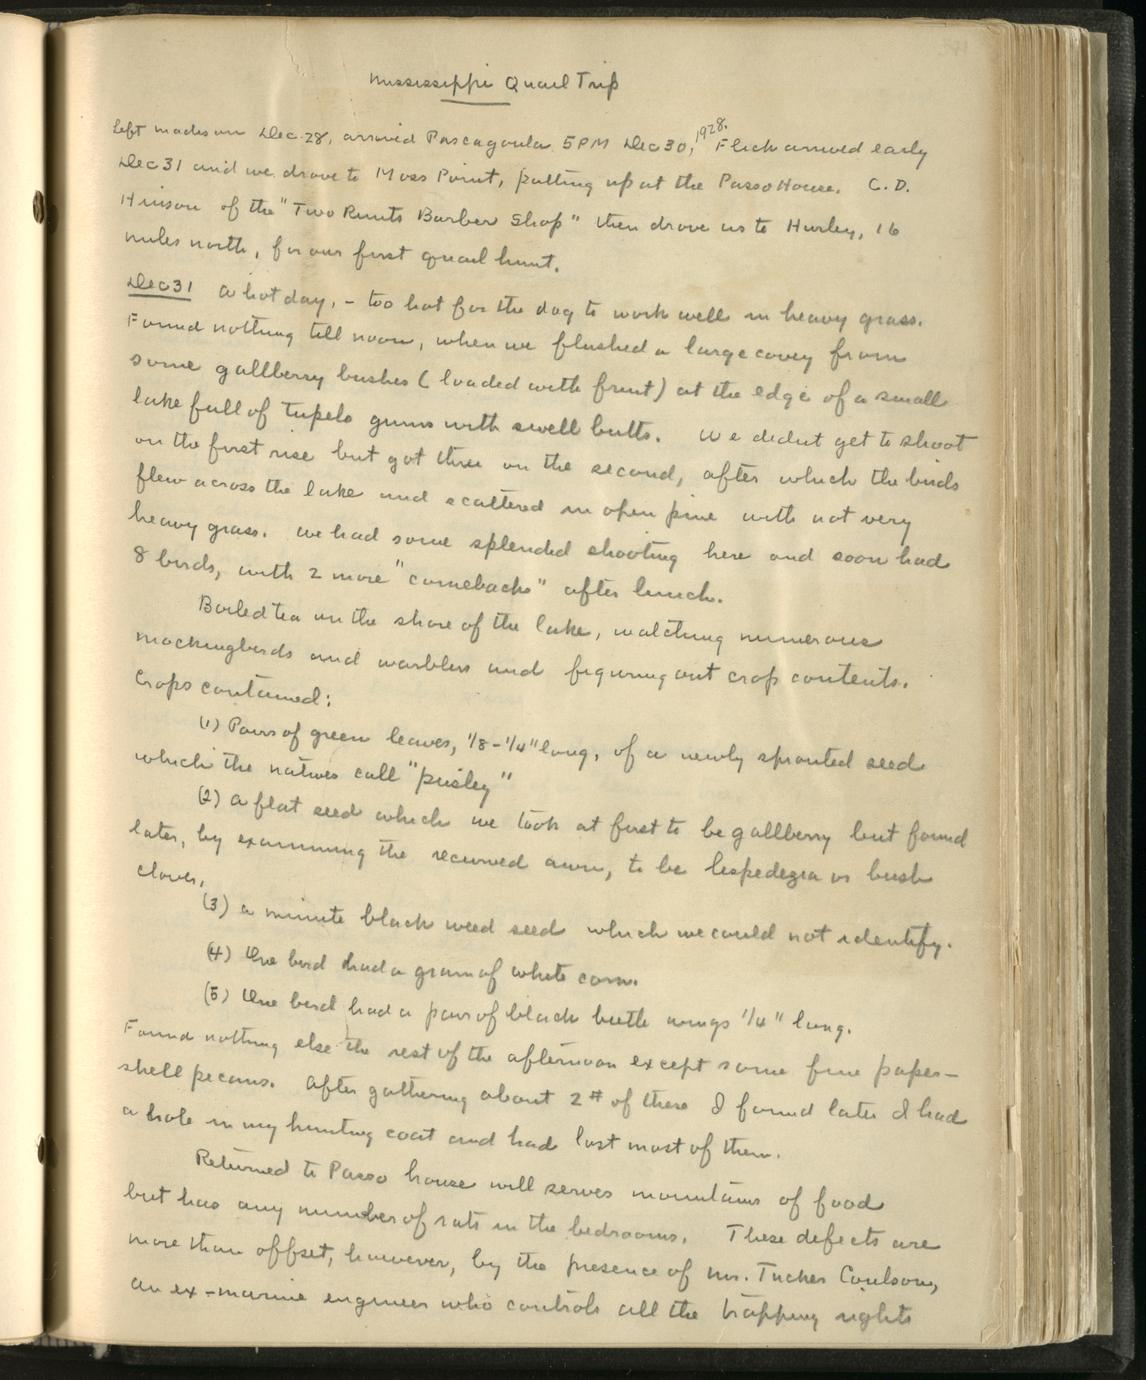 Mississippi Quail Trip
Left Madison Dec. 28, arrived Pascagoula 5PM Dec 30, 1928. Flick arrived early
Dec 31 and we drove to Moss Point, putting up at the Passo House. C. D.
Hinson of the "Two Runts Barber Shop" then drove us to Hurley, 16
miles north, for our first quail hunt.
Dec 31 A hot day, - too hot for the dog to work well in heavy grass.
Found nothing till noon, when we flushed a large covey from
some gallberry bushes (loaded with fruit) at the edge of a small
lake full of tupelo gums with swell butts. We didnt get to shoot
on the first rise but got three on the second, after which the birds
flew across the lake and scattered in open pine with not very
heavy grass. We had some splended shooting here and soon had
8 birds, with 2 more "comebacks" after lunch.
Boiled tea on the shore of the lake, watching numerous
mockingbirds and warblers and figuring out crop contents.
Crops contained:
(1) Pairs of green leaves, 1/8-1/4" long, of a newly sprouted seed
which the natives call "pusley"
(2) A flat seed which we took at first to be gallberry but found
later, by examining the recurved awn, to be lespedegia or bush
clover.
(3) A minute black weed seed which we could not identify.
(4) One bird had a grain of white corn.
(5) One bird had a pair of black beetle wings 1/4" long.
Found nothing else the rest of the afternoon except some fine paper-
shell pecans. After gathering about 2# of these I found later I had
a hole in my hunting coat and had lost most of them.
Returned to Passo house will serves mountains of food
but has any number of rats in the bedrooms. These defects are
more than offset, however, by the presence of Mr. Tucker Coulson,
an ex-marine engineer who controls all the trapping rights